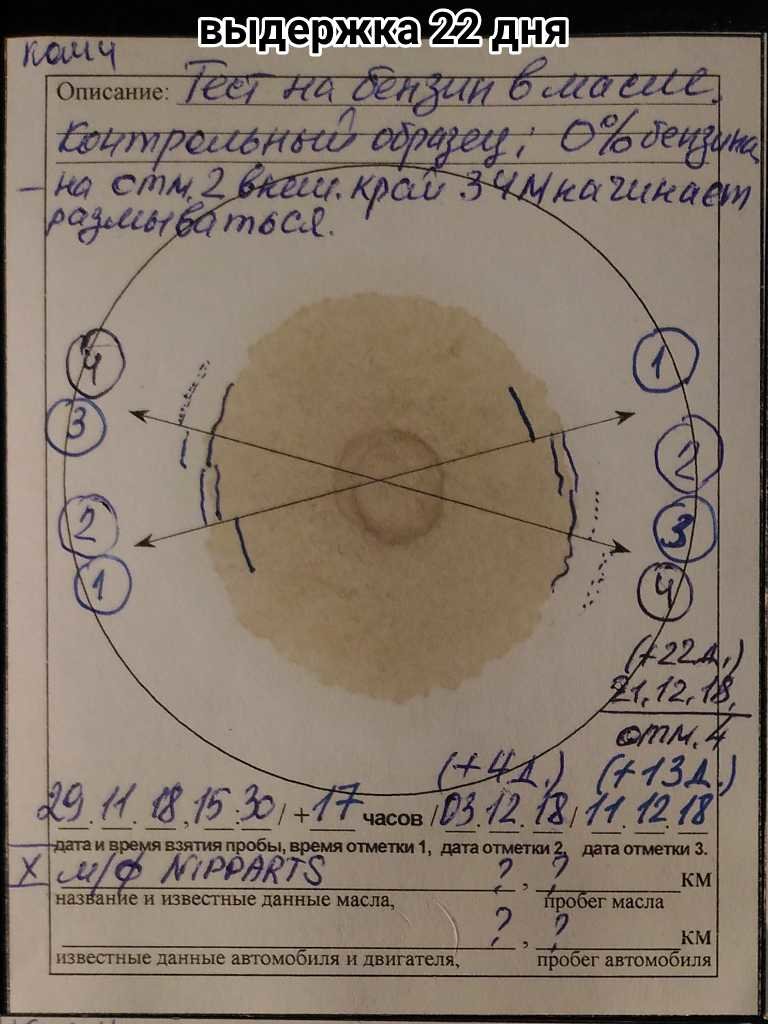 выдержка 22 дня
кому
Описание: Тест на бензин в масле.
Контрольный образец; 0% бензина
- на отм. 2 внеш. край ЗЧМ начинает
размываться.
4 1
3 2
2 3
1 4
(+22д.)
21.12.18.
отм. 4
(+4д.) (+13д.)
29.11.18,15:30/+17 часов /03.12.18/11.12.18
дата и время взятия пробы, время отметки 1, дата отметки 2, дата отметки 3.
X м/ф NIPPARTS ? , ? КМ
название и известные данные масла, пробег масла
? , ? КМ
известные данные автомобиля и двигателя, пробег автомобиля